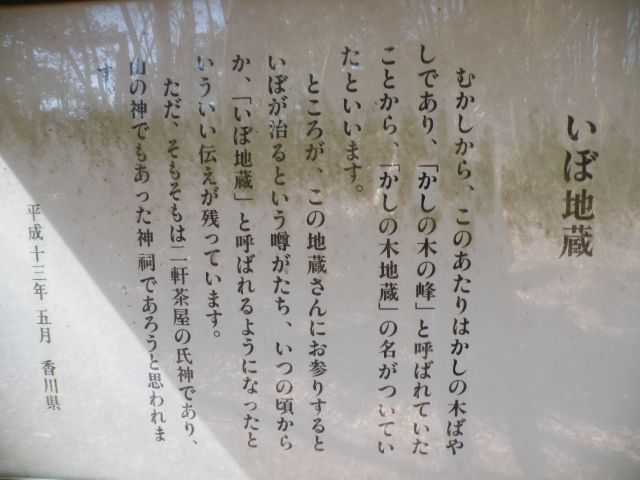 いぼ地蔵
むかしから、このあたりはかしの木ばや
しであり、「かしの木の峰」と呼ばれていた
ことから、「かしの木地蔵」の名がついてい
たといいます。
ところが、この地蔵さんにお参りすると
いぼが治るという噂がたち、いつの頃から
か、「いぼ地蔵」と呼ばれるようになったと
いういい伝えが残っています。
ただ、そもそもは二軒茶屋の氏神であり、
山の神でもあった神祠であろうと思われま
す。
平成十三年五月 香川県